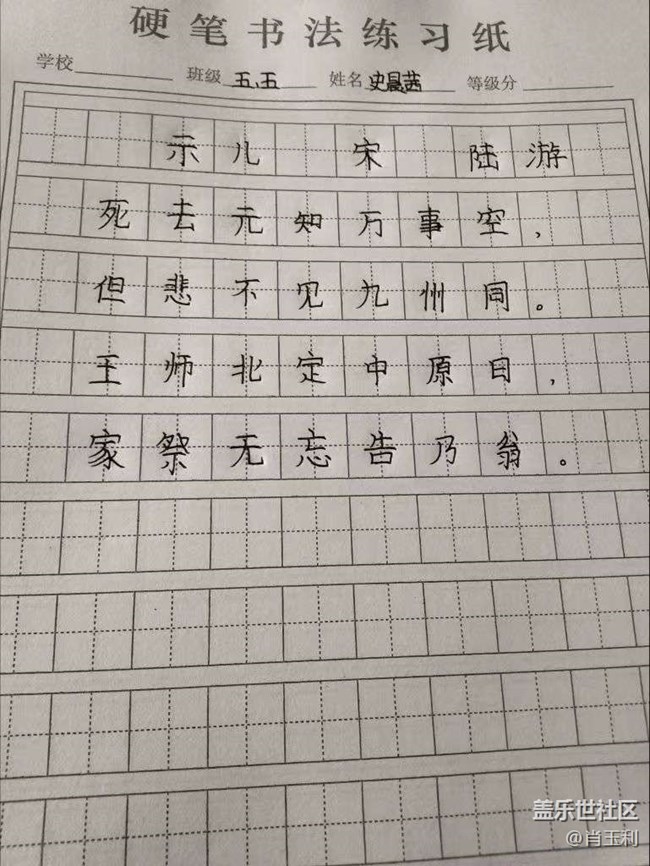 硬笔书法练习纸
学校 班级 五、五 姓名 史晨茜 等级分
示儿 宋 陆游
死去元知万事空，
但悲不见九州同。
王师北定中原日，
家祭无忘告乃翁。
盖乐世社区
@肖玉利